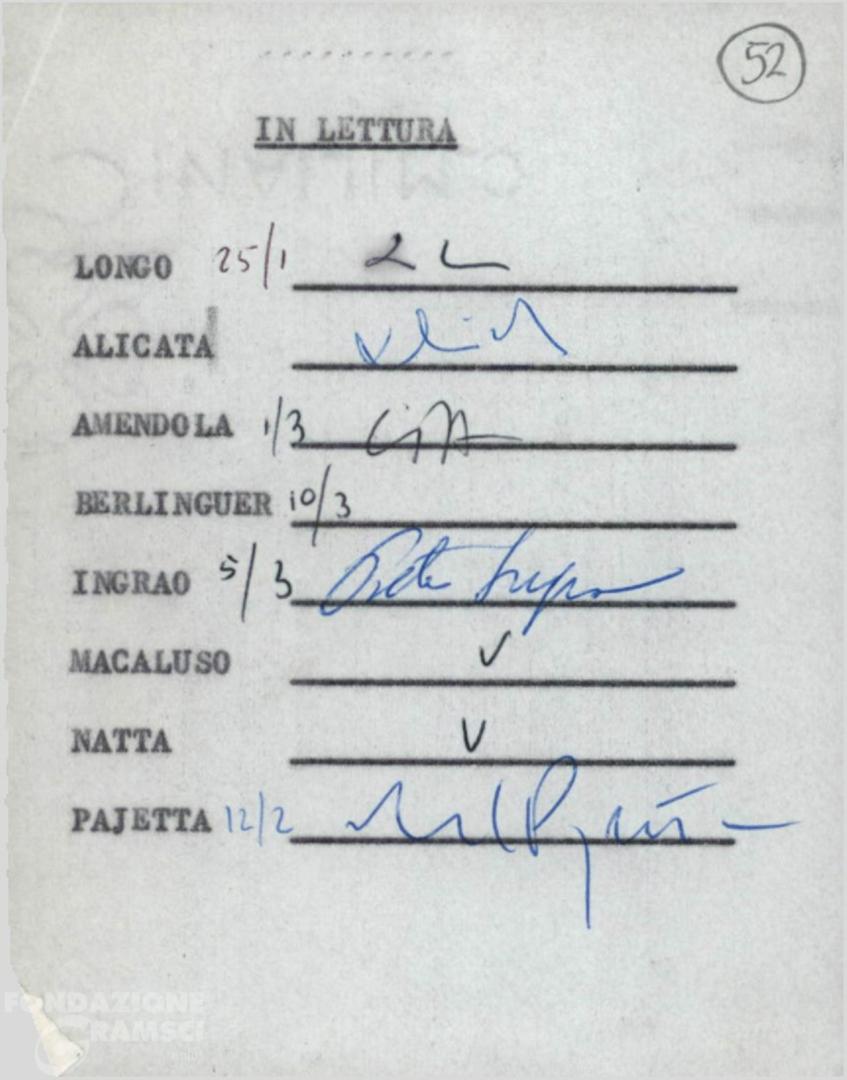 52
IN LETTURA
LONGO 25/1 L L
ALICATA
AMENDOLA 1/3 GA
BERLINGUER 10/3
INGRAO 5/3 Pietro Ingrao
MACALUSO V
NATTA V
PAJETTA 12/2
FONDAZIONE
GRAMSCI